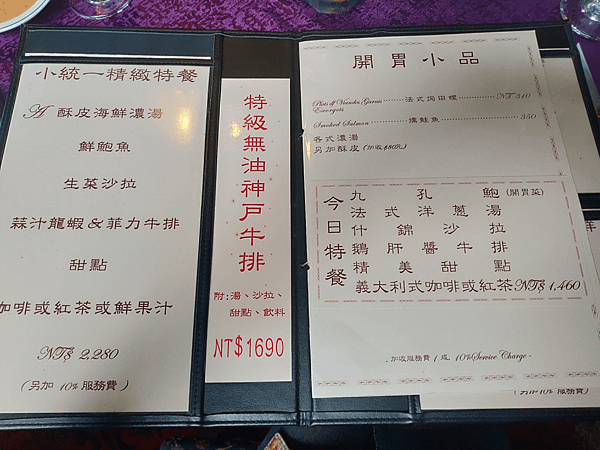 小統一精緻特餐
A 酥皮海鮮濃湯
鮮鮑魚
生菜沙拉
蒜汁龍蝦&菲力牛排
甜點
咖啡或紅茶或鮮果汁
NT$ 2,280
(另加 10% 服務費)
特級無油神戶牛排
附:湯、沙拉、
甜點、飲料
NT$1690
開胃小品
Plats d' Viandes Garnis
Escargots ············法式焗田螺············ NT 310
Smoked Salmon ············燻鮭魚············ 350
各式濃湯
另加酥皮(加收$80元)
今日特餐
九孔鮑(開胃菜)
法式洋蔥湯
什錦沙拉
鵝肝醬牛排
精美甜點
義大利式咖啡或紅茶NT$ 1,460
- 加收服務費 1 成 10%Service Charge -